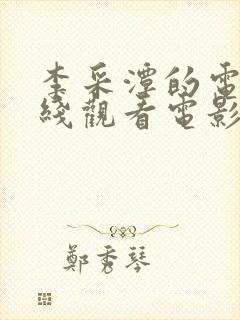 李采潭的電
綫觀看電影
鄭秀琴